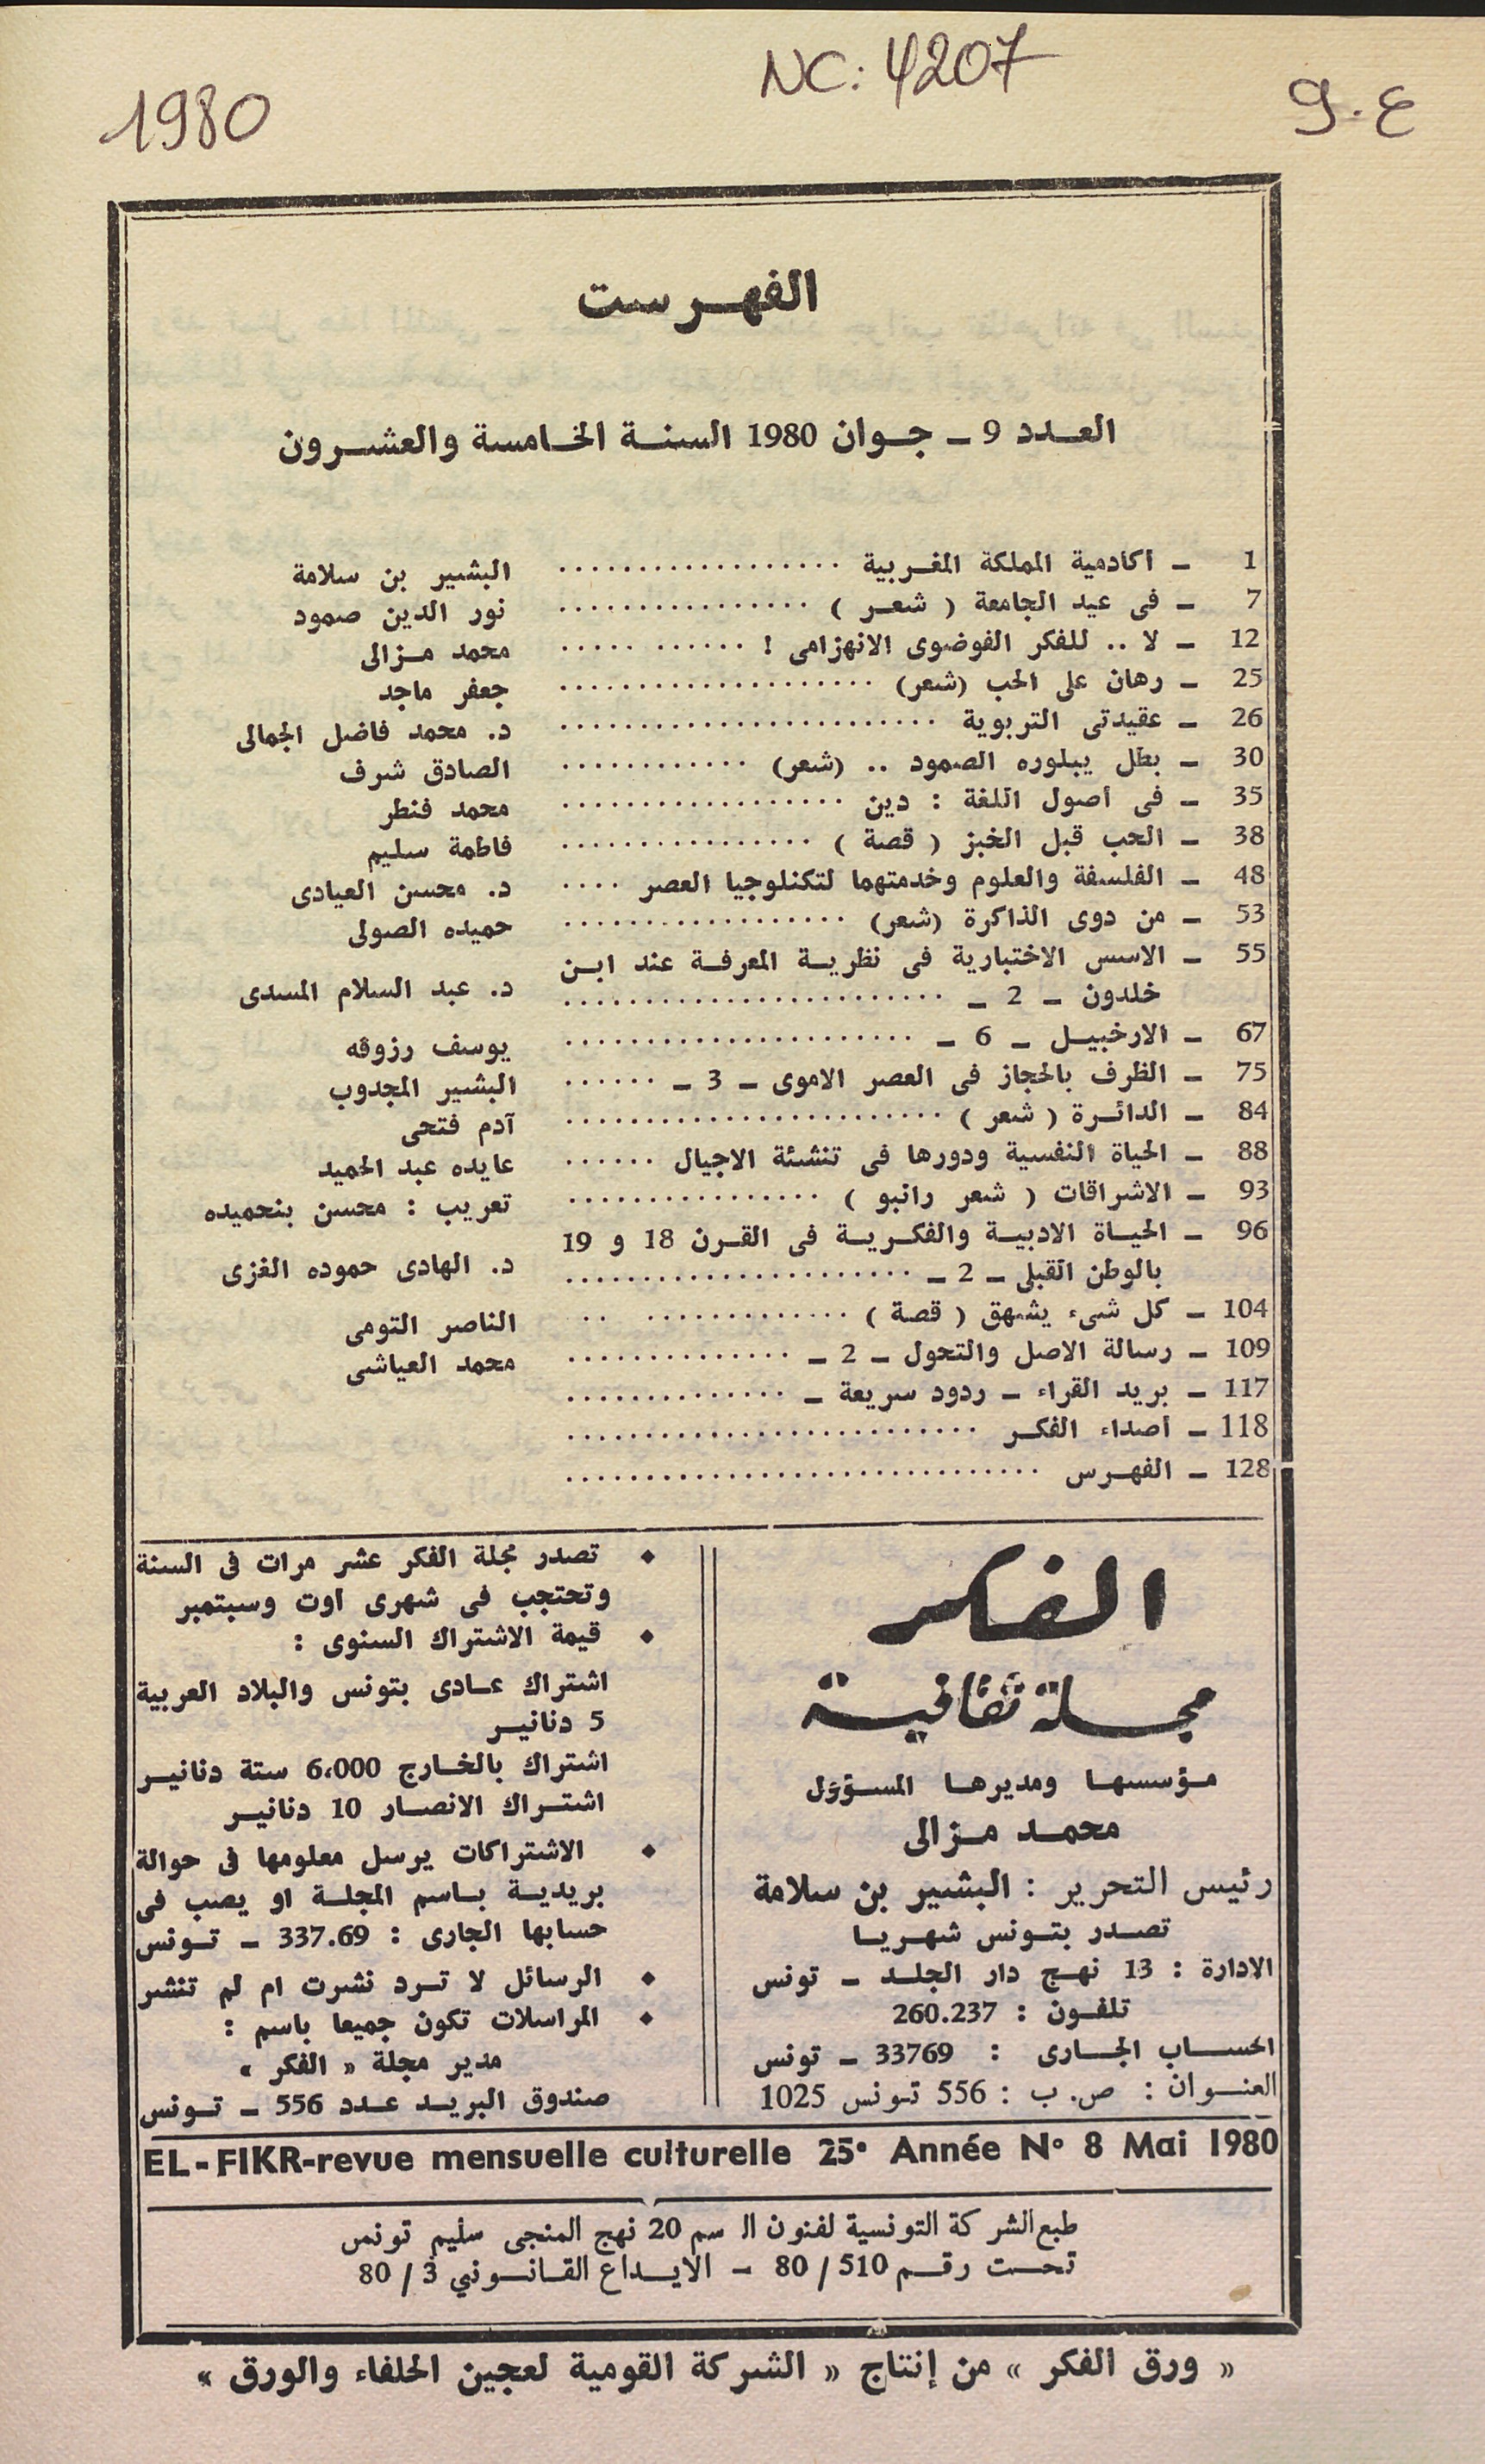 1980
NC: 4207
ع.9
الفهرست
العدد 9 ـ جوان 1980 السنة الخامسة والعشرون
1 ـ اكادمية المملكة المغربية .................. البشير بن سلامة
7 ـ فى عيد الجامعة ( شعر ) ................ نور الدين صمود
12 ـ لا .. للفكر الفوضوى الانهزامى ! ...... ..... محمد مزالى
25 ـ رهان على الحب (شعر) .................... جعفر ماجد
26 ـ عقيدتى التربوية ........................ د. محمد فاضل الجمالى
30 ـ بطل يبلوره الصمود .. (شعر) ............ الصادق شرف
35 ـ فى اصول اللغة : دين .................. محمد فنطر
38 ـ الحب قبل الخبز ( قصة ) ................ فاطمة سليم
48 ـ الفلسفة والعلوم وخدمتهما لتكنلوجيا العصر .... د. محسن العيادى
53 ـ من دوى الذاكرة (شعر) .................. حميده الصولى
55 ـ الاسس الاختبارية فى نظرية المعرفة عند ابن
خلدون ـ 2 ـ ........................ د. عبد السلام المسدى
67 ـ الارخبيل ـ 6 ـ ...................... يوسف رزوقه
75 ـ الظرف بالحجاز فى العصر الاموى ـ 3 ـ ...... البشير المجدوب
84 ـ الدائرة ( شعر ) ........................ آدم فتحى
88 ـ الحياة النفسية ودورها فى تنشئة الاجيال ...... عايده عبد الحميد
93 ـ الاشراقات ( شعر رانبو ) ................ تعريب : محسن بنحميده
96 ـ الحياة الادبية والفكرية فى القرن 18 و 19
بالوطن القبلى ـ 2 ـ ...................... د. الهادى حموده الغزى
104 ـ كل شىء يشهق ( قصة ) ............. .. الناصر التومى
109 ـ رسالة الاصل والتحول ـ 2 ـ .............. محمد العياشى
117 ـ بريد القراء ـ ردود سريعة ـ ..............
118 ـ اصداء الفكر ..........................
128 ـ الفهرس ..............................
الفكر
مجلة ثقافية
مؤسسها ومديرها المسؤول
محمد مزالى
رئيس التحرير : البشير بن سلامة
تصدر بتونس شهريا
الادارة : 13 نهج دار الجلد ـ تونس
تلفون : 260.237
الحساب الجارى : 33769 ـ تونس
العنوان : ص. ب : 556 تونس 1025
♦ تصدر مجلة الفكر عشر مرات فى السنة
وتحتجب فى شهرى اوت وسبتمبر
♦ قيمة الاشتراك السنوى :
اشتراك عادى بتونس والبلاد العربية
5 دنانير
اشتراك بالخارج 6،000 ستة دنانير
اشتراك الانصار 10 دنانير
♦ الاشتراكات يرسل معلومها فى حوالة
بريدية باسم المجلة او يصب فى
حسابها الجارى : 337.69 ـ تونس
♦ الرسائل لا ترد نشرت ام لم تنشر
♦ المراسلات تكون جميعا باسم :
مدير مجلة « الفكر »
صندوق البريد عدد 556 ـ تونس
EL-FIKR-revue mensuelle culturelle 25° Année N° 8 Mai 1980
طبع الشركة التونسية لفنون الرسم 20 نهج المنجى سليم تونس
تحت رقم 510 / 80 - الايداع القانوني 3 / 80
« ورق الفكر » من إنتاج « الشركة القومية لعجين الحلفاء والورق »